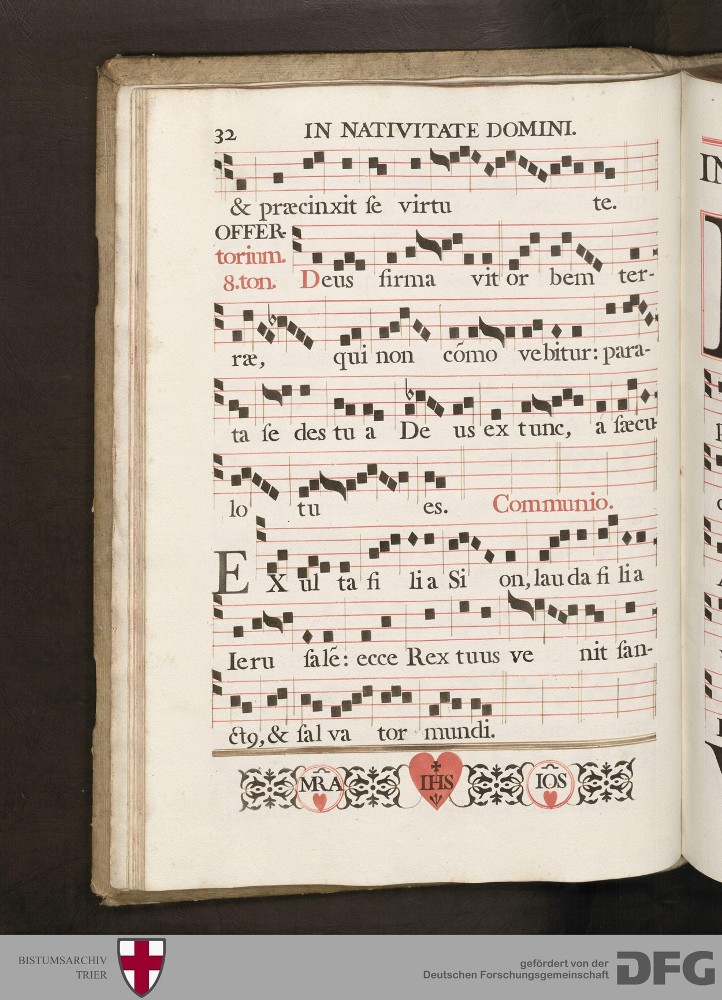 32 IN NATIVITATE DOMINI.
& præcinxit ſe virtu te.
OFFER-
torium.
8.ton. Deus firma vit or bem ter-
ræ, qui non cõmo vebitur: para-
ta ſe des tu a De us ex tunc, á ſæcu-
lo tu es. Communio.
EX ul ta fi lia Si on, lau da fi lia
Ieru ſalẽ: ecce Rex tuus ve nit ſan-
ctꝰ, & ſal va tor mundi.
MRA IHS IOS
IN
BISTUMSARCHIV
TRIER
gefördert von der
Deutschen Forschungsgemeinschaft
DFG